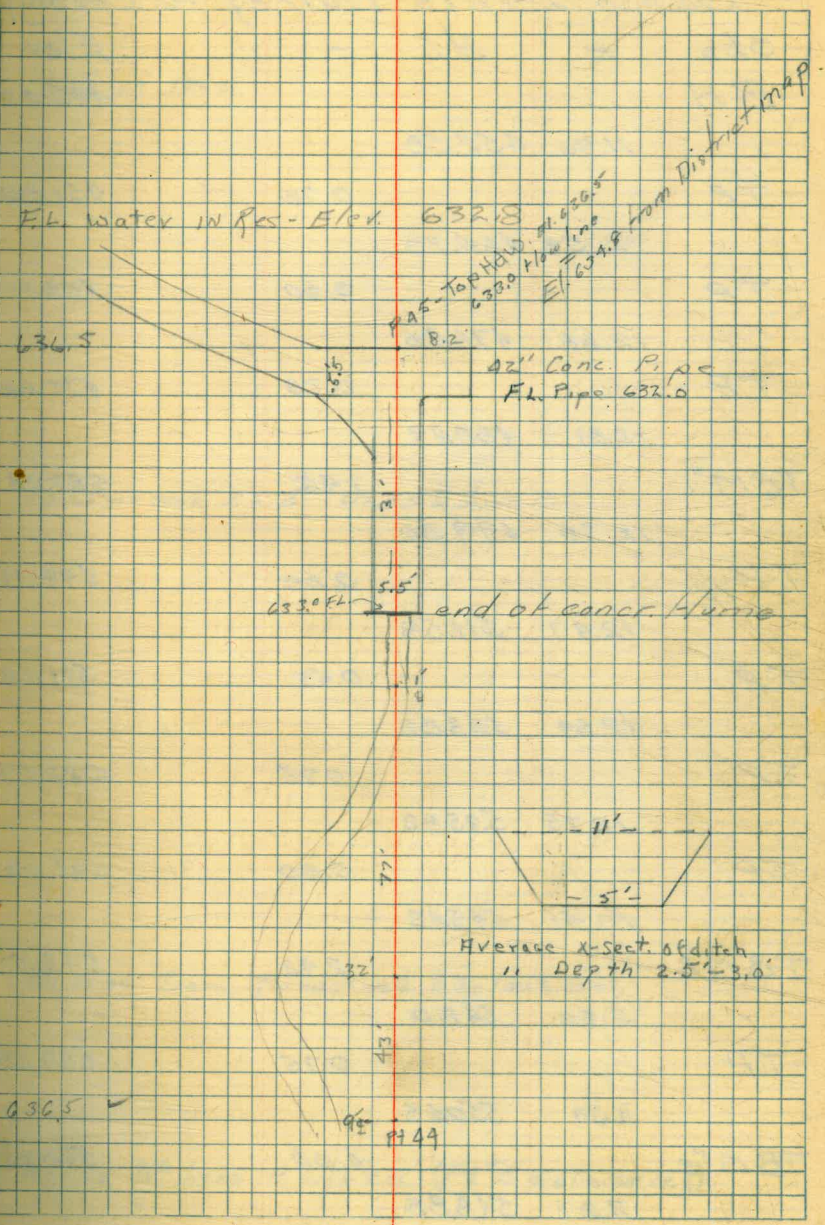 F.L. water IN Res - Elev. 632.8
Pt 45 - Top Hdw. El. 636.5
633.0 flow line
El. 634.8 from District map
636.5
8.2
5.5'
42" Conc. Pipe
F.L. Pipe 632.0
31'
5.5'
633.0 FL.
end of concr. flume
11'
5'
77'
Average x-sect. of ditch
" Depth 2.5'-3.0'
32'
43'
636.5 ✓
Pt 44